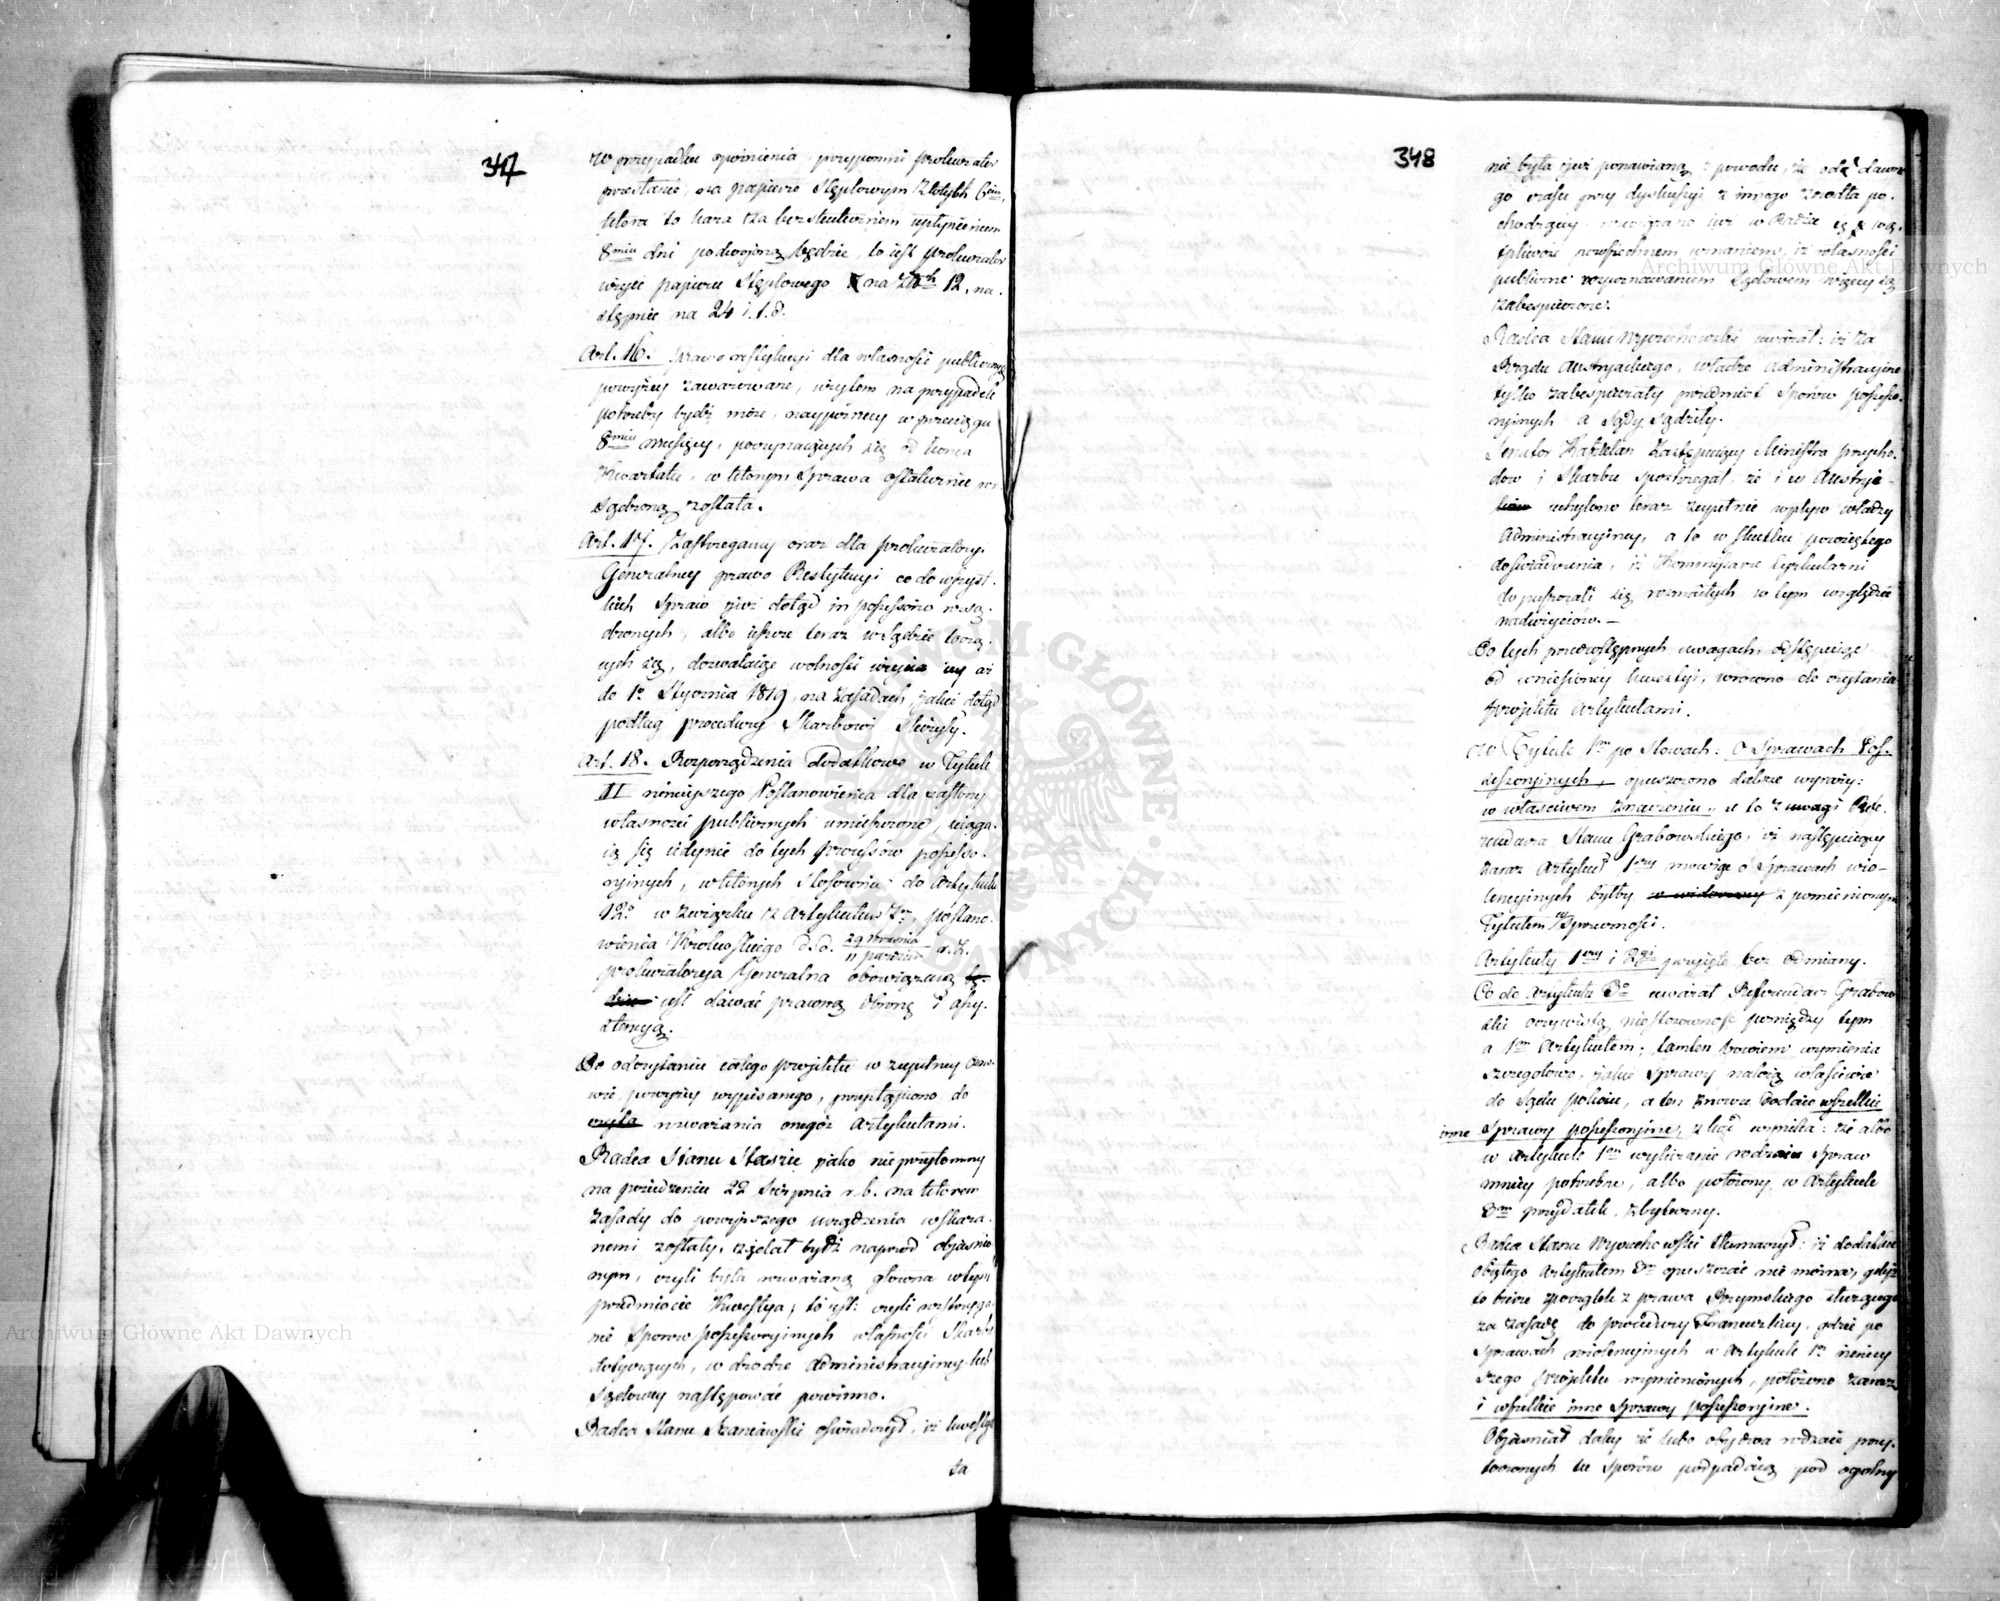 347
w przypadku opóźnienia przypomni prokurator
powtórnie, na papierze Stęplowym Złotych 6ciu,
która to kara za bezskutecznem upłynieniem
8miu dni podwojoną będzie, to iest prokurator
użyie papieru Stęplowego na Złoth 12, na-
stępnie na 24 i.t.d.
Art. 16. prawo restytucyi dla własności publiczney
powyżey zawarowane, użytem na przypadek
potrzeby bydź może, naypóźniey w przeciągu
8miu miesięcy, poczynaiących się od końca
Kwartału, w którym Sprawa ostatecznie o-
sądzoną została.
Art. 17. Zastrzegamy oraz dla prokuratoryi
Generalney prawo Restytucyi co do wszyst-
kich Spraw już dotąd in possessorio osą-
dzonych, albo ieszcze teraz w Sądzie toczą-
cych się, dozwalaiąc wolności użycia iey aż
do 1o Stycznia 1819, na zasadach, jakie dotąd
podług procedury Skarbowi Służyły.
Art. 18. Rozporządzenia dodatkowe w Tytule
II ninieyszego Postanowienia dla zasłony
własności publicznych umieszczone, ściąga-
ią się iedynie do tych processów posses-
soryinych, w których Stosownie do Artykułu
12o w związku z Artykułem 7m, postano-
wienia Królewskiego d.d. 29 Września / 11 paźdz: r.z.
prokuratorya Generalna obowiązaną
iest dawać prawną Obronę i assy-
stencyą.
Po odczytaniu całego projektu w zupełney osno-
wie powyżey wypisanego, przystąpiono do
rozważania onegóż Artykułami.
Radca Stanu Staszic jako nieprzytomny
na posiedzeniu 22 Sierpnia r.b. na którem
zasady do powyższego urządzenia wskaza-
nemi zostały, żądał bydź naprzód obiaśnio-
nym, czyli była rozważaną główna w tym
przedmiocie Kwestya, to iest: czyli rozstrzyga-
nie sporów possessoryinych własności Skarbu
dotyczących, w drodze Administracyiney lub
Sądowey następować powinno.
Radca Stanu Szaniawski oświadczył, iż kwestya
ta
348
nie była już ponawianą z powodu, że od dawne-
go czasu przy dyskussyi z innego źródła po-
chodzącey rozwiązano iuż w Radzie tę wą-
tpliwość powszechnem uznaniem, iż własności
publiczne rozpoznawaniem Sądowem więcey są
zabespieczone.
Radca Stanu Wyczechowski uważał: iż za
Rządu Austryackiego, władze Administracyine
tylko zabespieczały przedmiot Sporów posses-
soryinych a Sądy Sądziły.
Senator Kasztelan Zastępuiący Ministra przycho-
dów i Skarbu spostrzegał, że i w Austryi
uchylono teraz zupełnie wpływ władzy
Administracyiney, a to w skutku powziętego
doświadczenia, iż Kommissarze Cyrkularni
dopuszczali się rozmaitych w tym względzie
nadużyciów. –
Po tych przedwstępnych uwagach, odstępuiąc
od wniesioney kwestyi, wrócono do czytania
projektu Artykułami.
W Tytule 1m po Słowach: o Sprawach Pos-
sessoryinych, opuszczono dalsze wyrazy:
w właściwem znaczeniu, a to z uwagi Refe-
rendarza Stanu Grabowskiego, iż następuiący
zaraz Artykuł 1szy mówiąc o Sprawach wio-
lencyinych byłby z pomienionym
Tytułem w Sprzeczności.
Artykuły 1szy i 2gi przyięte bez odmiany.
Co do Artykułu 3o uważał Referendarz Grabow-
ski oczywistą niestosowność pomiędzy tym
a 1m Artykułem; tamten bowiem wymienia
szczegółowo, jakie Sprawy należą właściwie
do Sądu pokoiu, a ten znowu dodaie wszelkie
inne Sprawy possessoryine, z kąd wynika: że albo
w Artykule 1m wyliczanie rodzaiu Spraw
mniey potrzebne, albo położony w Artykule
3m przydatek, zbyteczny.
Radca Stanu Wyczechowski tłumaczył: iż dodatku
obiętego Artykułem 3m opuszczać nie można, gdyż
to bierze początek z prawa Rzymskiego służącego
za zasadę do procedury Francuzkiey, gdzie po
Sprawach wiolencyinych w Artykule 1m nieniey-
szego projektu wymienionych, położono zaraz
i wszelkie inne Sprawy possessoryine.
Obiaśniał daley że lubo obydwa rodzaie przy-
toczonych tu sporów podpadaią pod ogólny
Archiwum Główne Akt Dawnych
Archiwum Główne Akt Dawnych